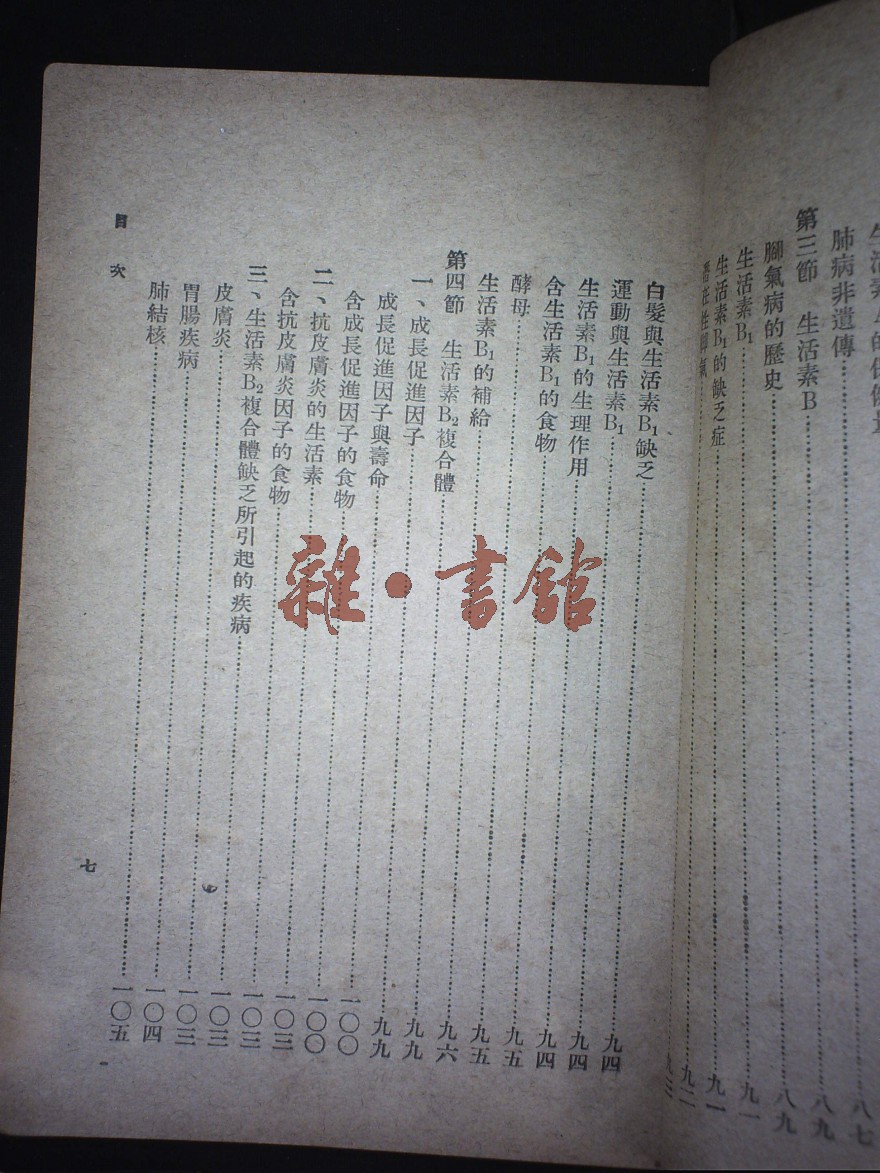 肺病非遺傳……八七
第三節 生活素B……八九
腳氣病的歷史……八九
生活素B₁……九一
生活素B₁的缺乏症……九一
九二
九三
白髮與生活素B₁缺乏……九四
運動與生活素B₁……九四
生活素B₁的生理作用……九四
含生活素B₁的食物……九五
酵母……九五
生活素B₁的補給……九六
第四節 生活素B₂複合體……九九
一、成長促進因子……九九
成長促進因子與壽命……一〇〇
含成長促進因子的食物……一〇〇
二、抗皮膚炎的生活素……一〇三
含抗皮膚炎因子的食物……一〇三
三、生活素B₂複合體缺乏所引起的疾病……一〇三
皮膚炎……一〇三
胃腸疾病……一〇四
肺結核……一〇五
目次
七
雜·書館